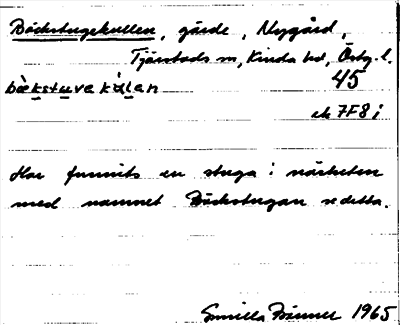 Bäckstugekullen, gärde, Nygård,
Tjärstads sn, Kinda hd, Östg. l.
45
bäkstuvekúlen
ek 7F8i
Har funnits en stuga i närheten
med namnet Bäckstugan se detta.
Gunilla 1965